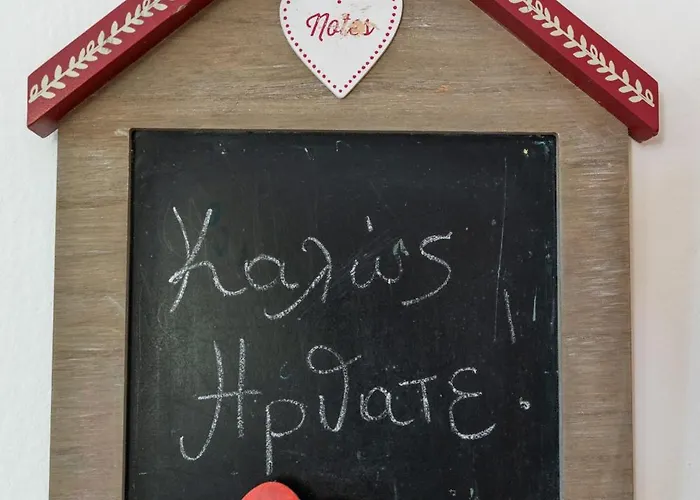 Notes
Καλώς
Ηρθατε